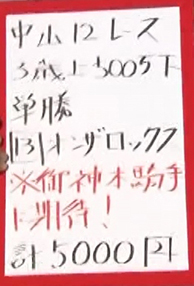 中山12レース
3歳上500万下
単勝
13オンザロックス
※御神本騎手
に期待!
計5000円